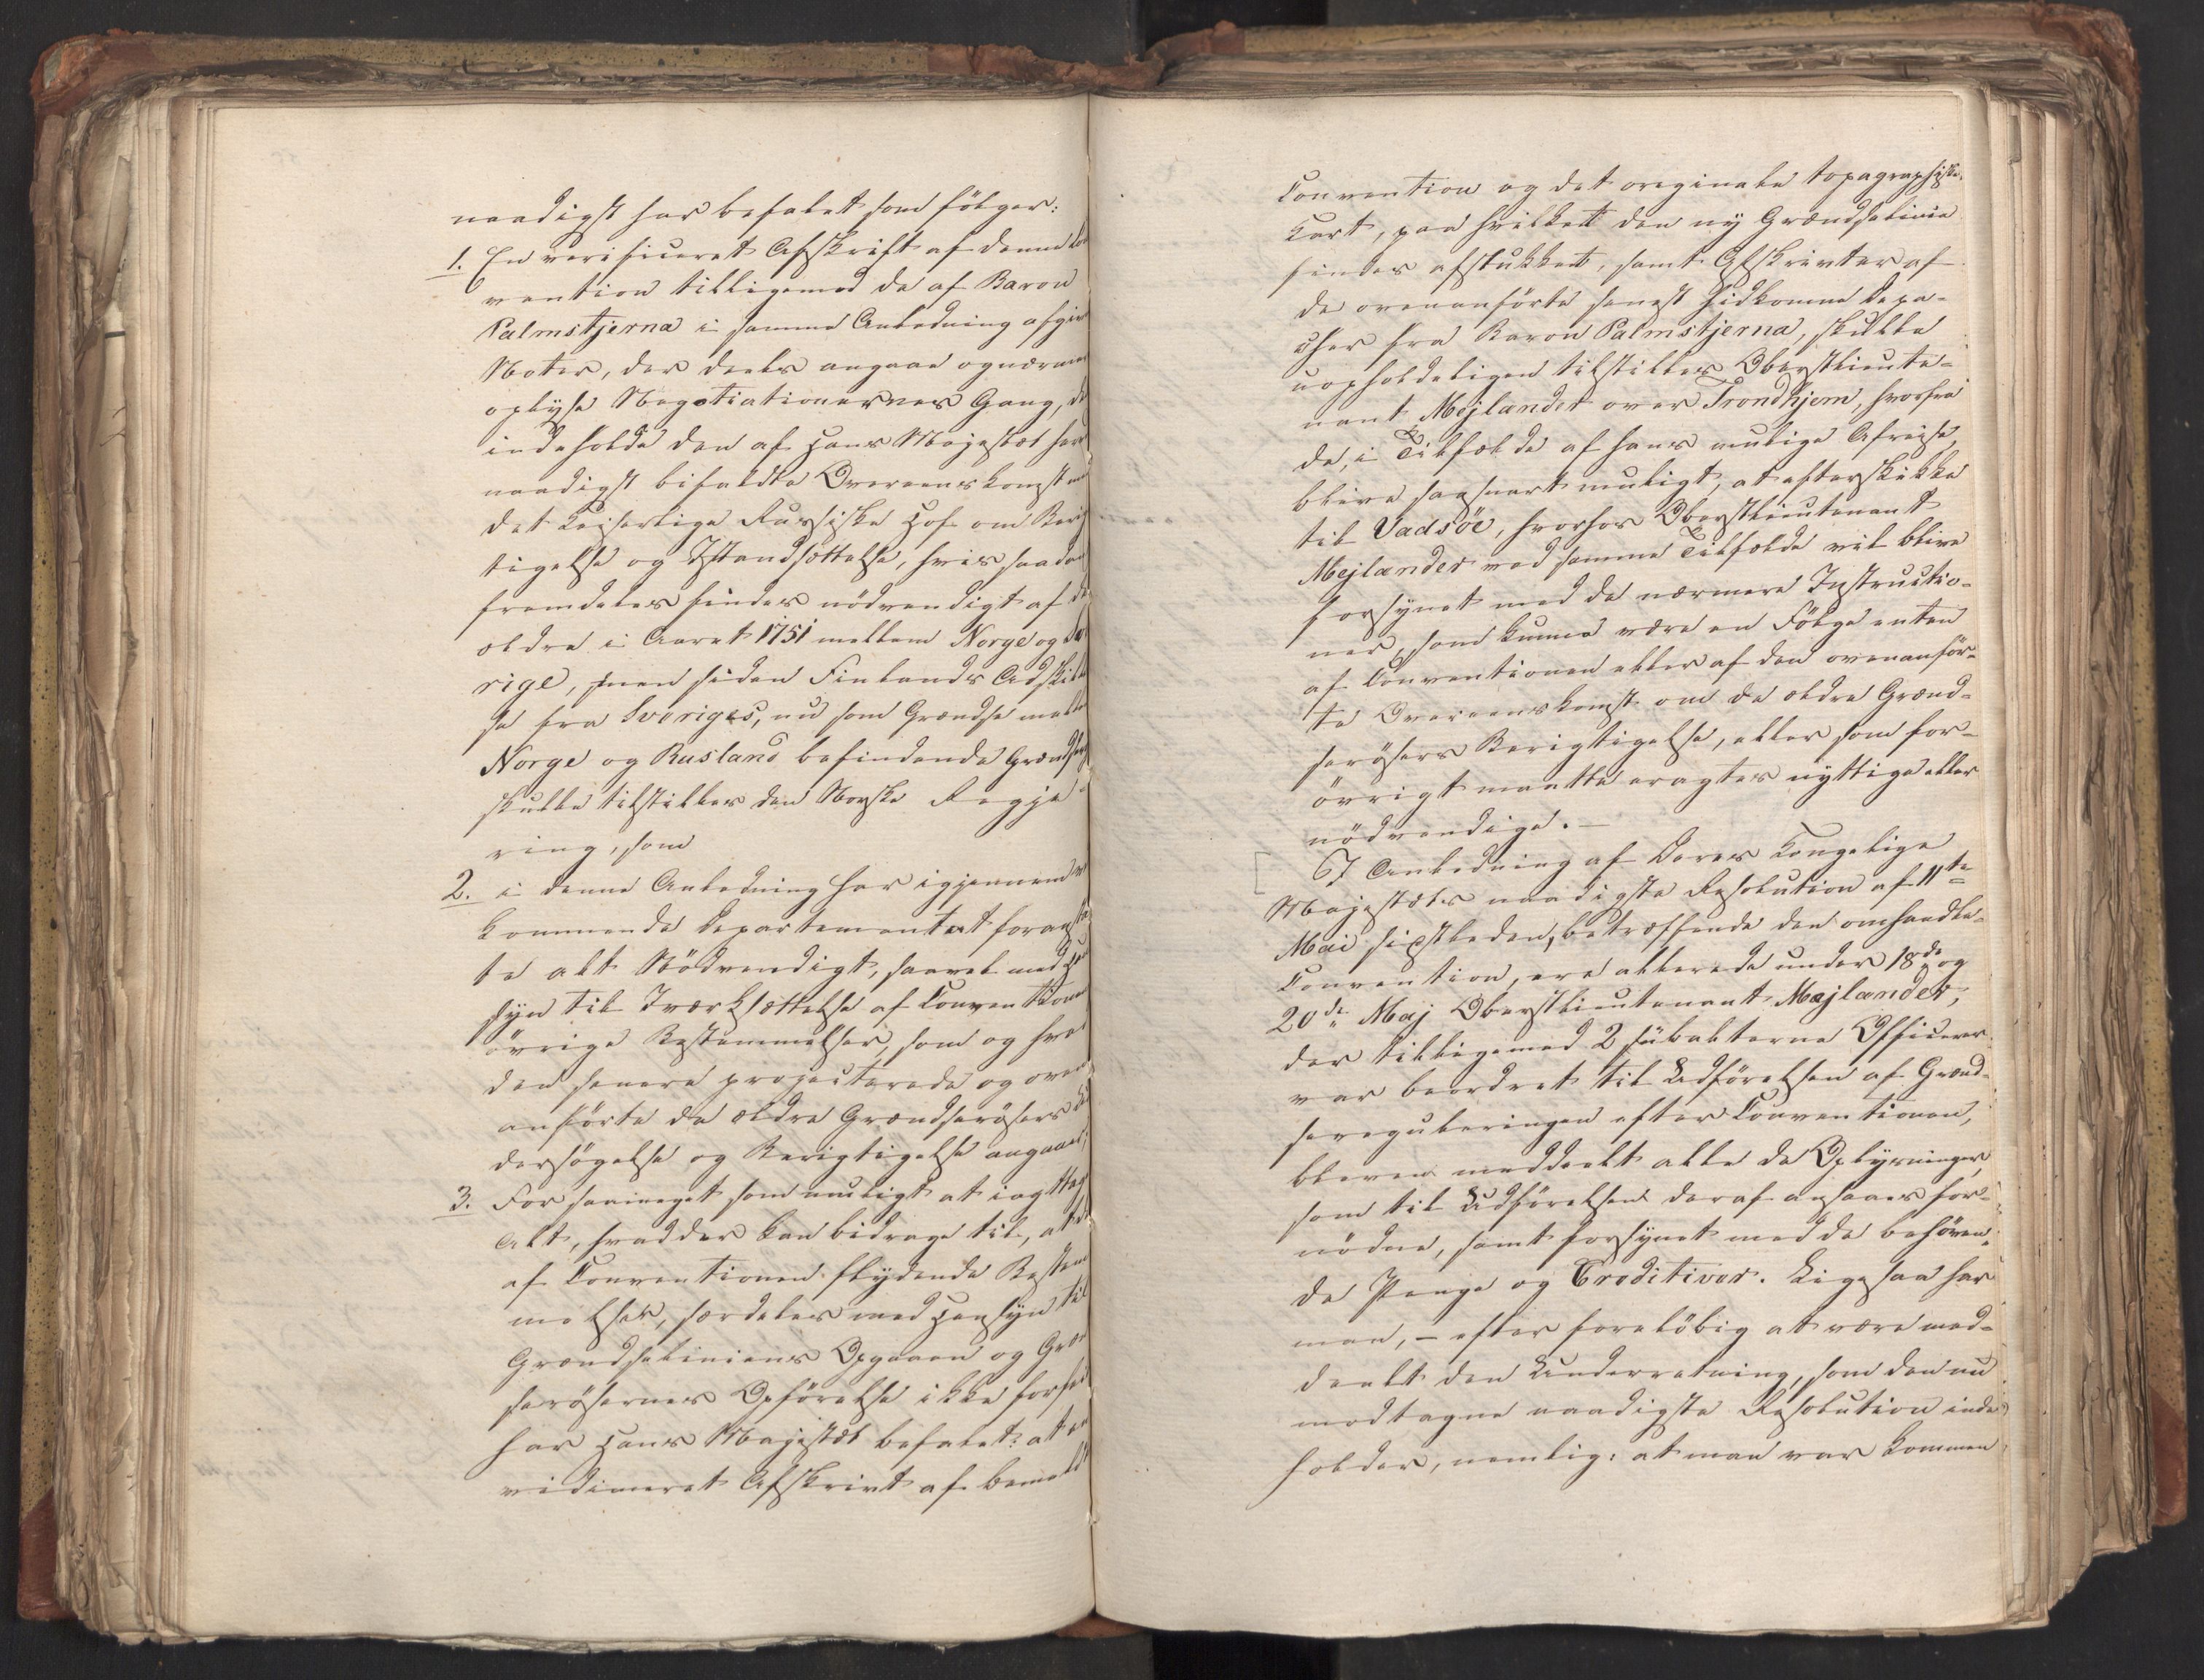 naadigst har befalet som fölger:
1. En verificeret Afskrift af denne Con
vention tilligemed de af Baron
Palmstjerna i samme Anledning afgiv
Noter, der deels angaae og nærme
oplyse Negotiationernes Gang, de
indeholde den af Hans Majestæt har
naadigst bifaldte Overeenskomst med
det Keiserlige Russiske Hof om Berig
tigelse og Istandsættelse, hvis saadan
fremdeles findes nödvendigt af de
ældre i Aaret 1751 mellem Norge og Sve
rige, men siden Finlands Adskillel
se fra Sveriges, nu som Grændse mellem
Norge og Rusland befindende Grændse
skulle tilstilles den Norske Regje
ring, som
2. i denne Anledning har igjennem ved
kommende Departementet foranstal
te alt Nödvendigt, saavel med Hen
syn til Iværksættelse af Conventionens
övrige Bestemmelser, som og hvad
den senere projecterede og oven
anförte de ældre Grændserösers Un
dersögelse og Berigtigelse angaaer;
3. For saameget som muligt at iagttage
Alt, hvad der kan bidrage til, at de
af Conventionen flydende Bestem
melser, særdeles med Hensyn til
Grændseliniens Opgaaen og Græn
serösernes Opförelse ikke forsin
har Hans Majestæt befalet: at en
vidimeret Afskrivt af bemeldte
Convention og det originale topographiske
Kart, paa hvilket den ny Grændselinie
findes afstukket, samt Afskrivter af
de ovenanförte senest hidkomne Depe-
cher fra Baron Palmstjerna, skulle
uopholdeligen tilstilles Oberstlieute-
nant Mejlænder over Trondhjem, hvorfra
de, i Tilfælde af hans mulige Afreise,
blive saasnart muligt, at efterskikke
til Vadsöe, hvorhos Oberstlieutenant
Mejlænder ved samme Tilfælde vil blive
forsynet med de nærmere Instructio-
ner, som kunne være en Fölge enten
af Conventionen eller af den ovenanför-
te Overeenskomst om de ældre Grænd-
serösers Berigtigelse, eller som for-
övrigt maatte eragtes nyttige eller
nödvendige. —
I Anledning af Deres Kongelige
Majestæts naadigste Resolution af 11te
Mai sidstleden, betræffende den omhandle-
Convention, ere allerede under 18de og
20de Maj Oberstlieutenant Mejlænder,
der tilligemed 2 subalterne Officerer
var beordret til Udförelsen af Grænd-
sereguleringen efter Conventionen,
bleven meddeelt alle de Oplysninger,
som til Udförelsen deraf ansaaes for-
nödne, samt forsynet med de behöven-
de Penge og Creditiver. Ligesaa har
man, — efter foreløbig at være med-
deelt den Underretning, som den nu
modtagne naadigste Resolution inde-
holder, nemlig: at man var kommen